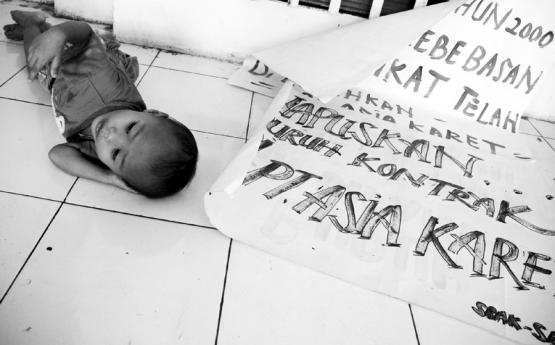 HUN 2000
KEBEBASAN
KAT TELAH
HKAN
ASIA KARET
HAPUSKAN
BURUH KONTRAK
PT ASIA KARE
SBAK-S